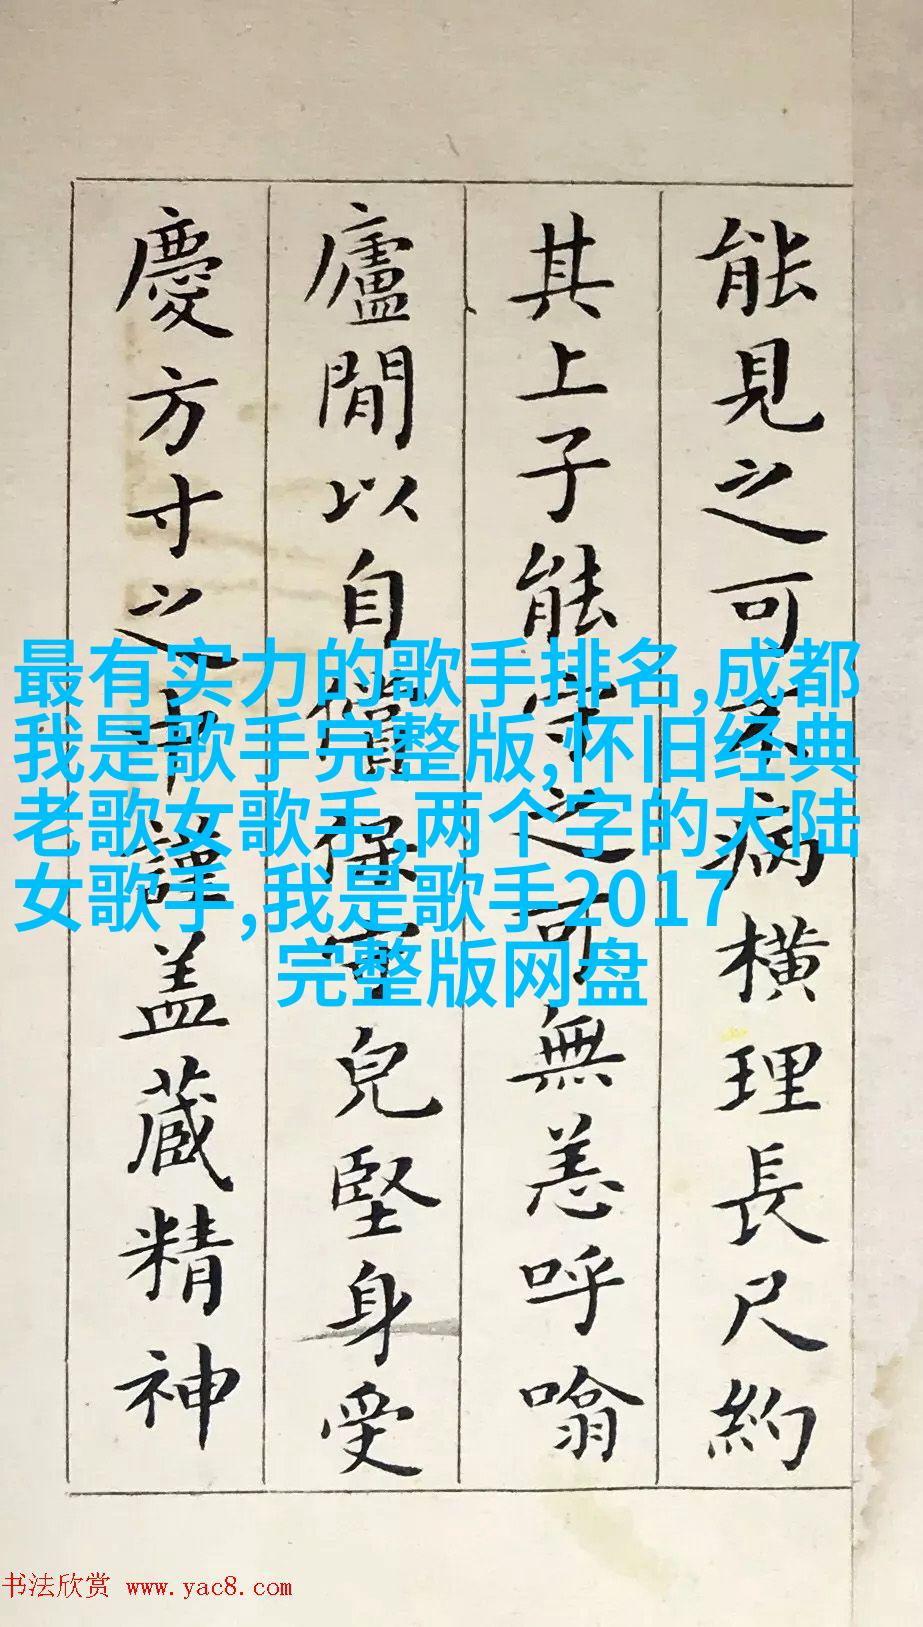 能見之可不病橫理長尺約
其上子能守之可無恙呼噏
廬閒以自償保守兒堅身受
慶方寸之中謹盖藏精神
最有实力的歌手排名,成都
我是歌手完整版,怀旧经典
老歌女歌手,两个字的大陆
女歌手,我是歌手2017
完整版网盘
书法欣赏 www.yac8.com